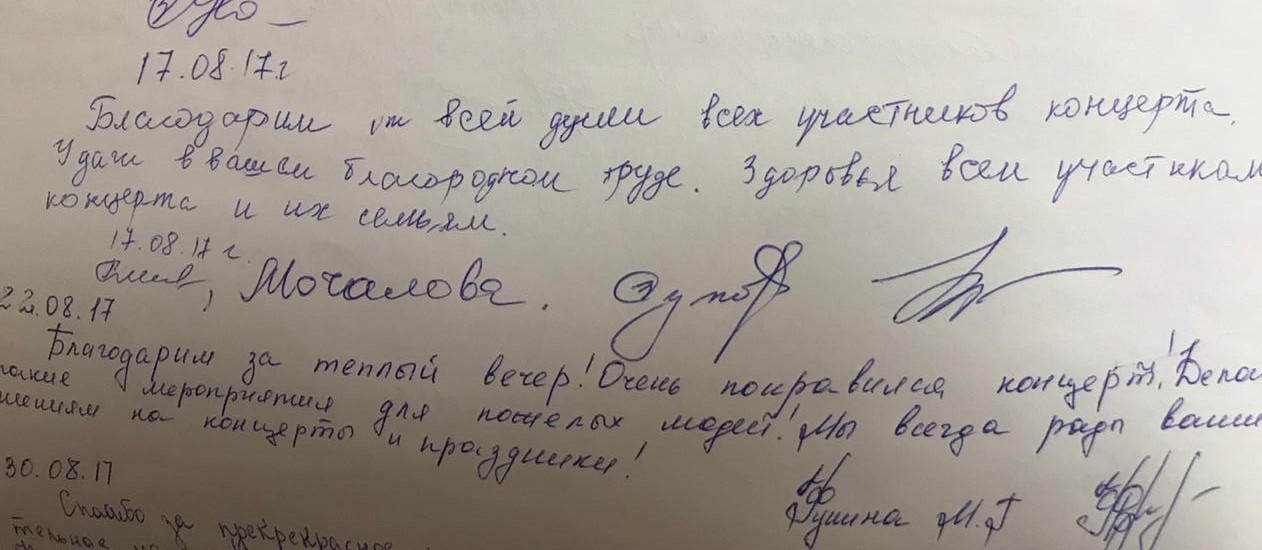 17.08.17г
Благодарим от всей души всех участников концерта.
Удачи в вашем благородном труде. Здоровья всем участникам
концерта и их семьям.
17.08.17 г.
Мочалова.
22.08.17
Благодарим за теплый вечер! Очень понравился концерт! Дела
такие мероприятия для пожелых людей! Мы всегда рады ваши
шениям на концерты и праздники!
30.08.17
М.Г
Спасибо за прекрекрасное
тельное